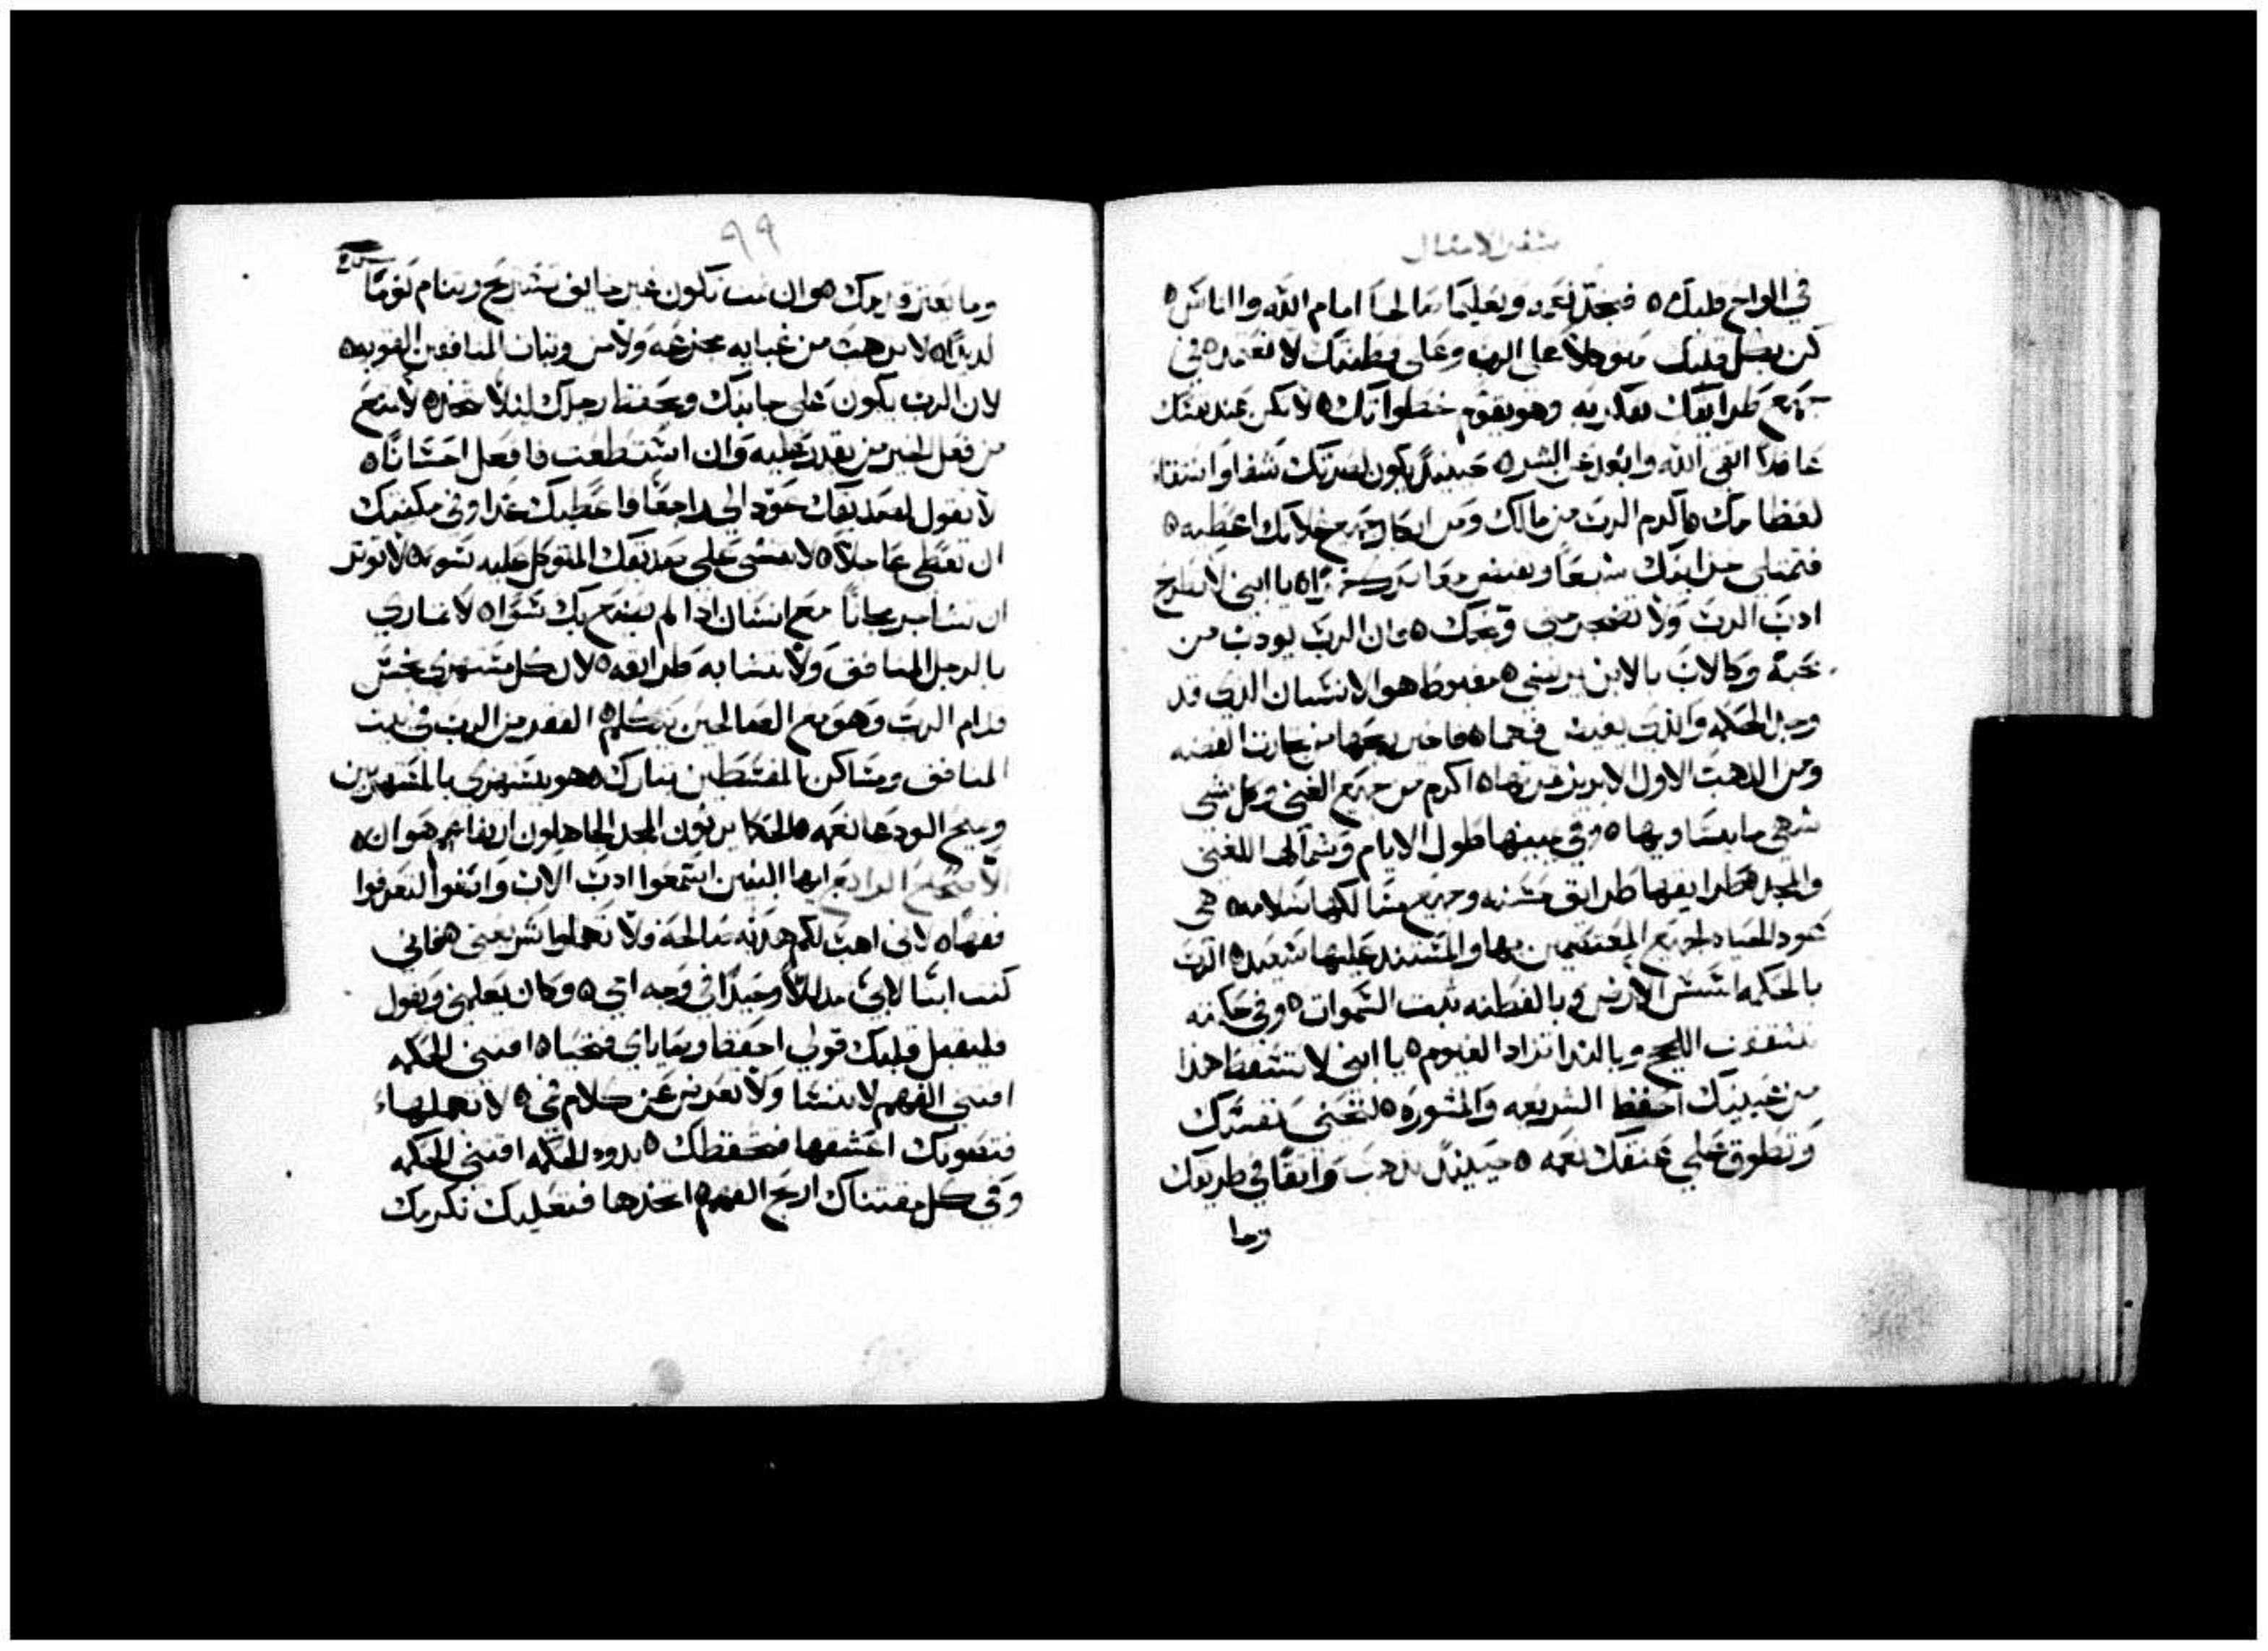 سفر الامثال
في الواح قلبك ه فتجد نعمه وتعليمًا صالحًا امام الله والناس ه
كن بكل قلبك متوكلاً على الرب وعلى فطنتك لا تعتمد ه في
جميع طرايقك تفكر به وهو يقوم خطواتك ه لا تكن عند نفسك
عاقلا اتقى الله وابعد عن الشر ه حينيذً يكون لسرتك شفا واستقاء
لعظامك ه اكرم الرب من مالك ومن ابكار جميع غلاتك اعطيه ه
فتمتلى خزاينك شبعًا وتفيض معاصرك خمرًا ه يا ابني لا تطرح
ادب الرب ولا تضجر متى قرعك ه فان الرب يودب من
يحبه وكالاب بالابن يرتضي ه مغبوط هو الانسان الذي قد
وجد الحكمه والذي يغيث فهما ه فاخير ربحها من تجارت الفضه
ومن الذهب الاول الابريز ثمرتها ه اكرم من جميع الغنى وكل شي
شهي ما يساويها ه وفي يمينها طول الايام وشمالها الغنى
والمجد ه طرايقها طرايق حسنه وجميع مسالكها سلامه ه هي
عود الحياه لجميع المعتصمين بها والمستند عليها سعيد ه الرب
بالحكمه اسس الارض وبالفطنه ثبت السموات ه وفي حكمته
تشققت اللجج وبالندا تزداد الغيوم ه يا ابني لا تسقط هذا
من عينيك احفظ الشريعه والمشوره ه لتحيى نفسك
وتطوق على عنقك نعمه ه حينيذً تذهب واثقًا في طريقك
وما
٩٩
وما تعثر قدمك ه وان نمت تكون غير خايف تستريح وتنام نومًا
لذيذًا ه لا ترهب من غيابه مجزعه ولا من وثبات المنافقين القويه ه
لان الرب يكون على جانبك ويحفظ رجلك ليلا تتخذ ه لا تمنع
من فعل الخير من يقدر عليه وان استطعت فافعل احسانًا ه
لا تقول لصديقك عود الي راجعًا واعطيك غدا وفي مكنتك
ان تعطي عاجلاً ه لا تنشي على صديقك المتوكل عليه سو ه لا توثر
ان تخاصم مجانًا مع انسان اذا لم يصنع بك سوا ه لا تماري
بالرجل المنافق ولا تشابه طرايقه ه لان كل مستهزي نجس
قدام الرب وهو مع الصالحين يتكلم ه الفقر من الرب في بيت
المنافق ومساكن المقسطين تبارك ه هو يستهزى بالمستهزيين
ويمنح الودعا نعمه ه الحكما يرثون المجد الجاهلون ارتفاعهم هوان ه
الاصحاح الرابع ايها البنين استمعوا ادب الاب واتقوا لتعرفوا
فهمًا ه لاني اهب لكم هديه صالحه ولا تهملوا شريعتي ه فاني
كنت ابنًا لابي مدللاً وحيدًا في وجه امي ه وكان يعلمني ويقول
فليقبل قلبك قولي احفظ وصاياي فتحيا ه اقتنى الحكمه
اقتنى الفهم لا تنسا ولا تعرض عن كلام فمي ه لا تهملها
فتصونك اعشقها فتحفظك ه بدو الحكمه اقتني الحكمه
وفي كل مقتناك اربح الفهم ه اتخذها فتعليك تكرمك